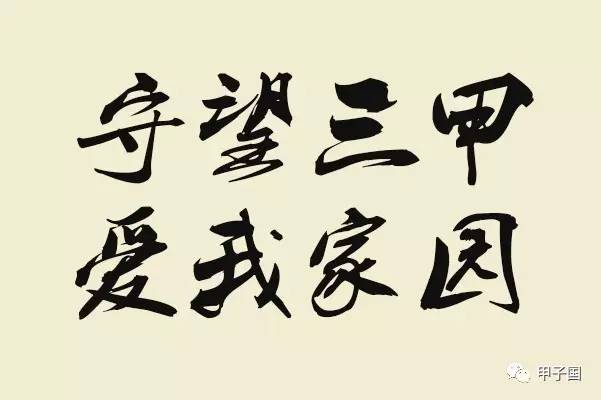 守望三甲
爱我家园
甲子国